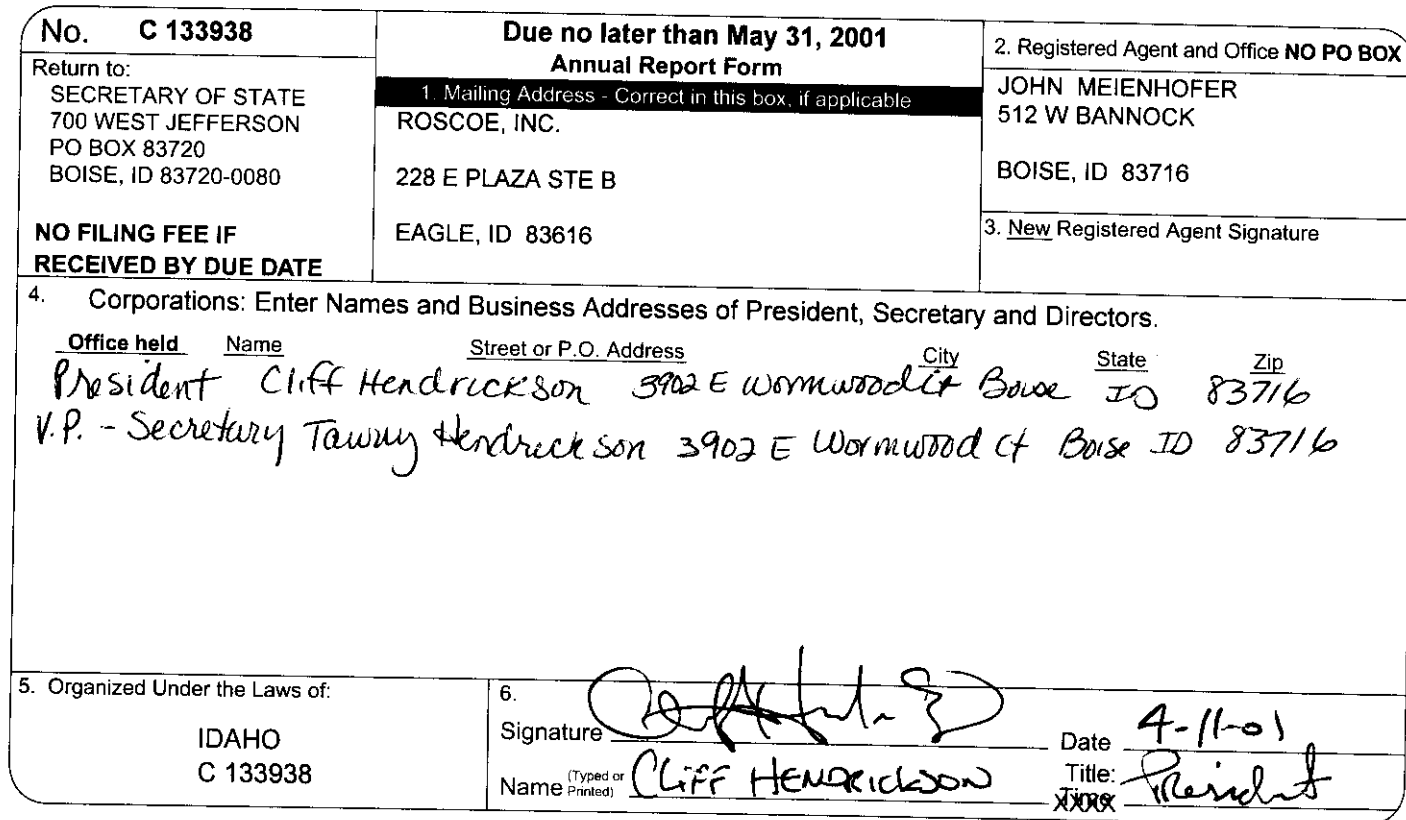 No. C 133938
Return to:
SECRETARY OF STATE
700 WEST JEFFERSON
PO BOX 83720
BOISE, ID 83720-0080
NO FILING FEE IF
RECEIVED BY DUE DATE
Due no later than May 31, 2001
Annual Report Form
1. Mailing Address - Correct in this box, if applicable
ROSCOE, INC.
228 E PLAZA STE B
EAGLE, ID 83616
2. Registered Agent and Office NO PO BOX
JOHN MEIENHOFER
512 W BANNOCK
BOISE, ID 83716
3. New Registered Agent Signature
4. Corporations: Enter Names and Business Addresses of President, Secretary and Directors.
Office held Name Street or P.O. Address City State Zip
President Cliff Hendrickson 3902 E Wormwood Ct Boise ID 83716
V.P. - Secretary Hendrickson 3902 E Wormwood Ct Boise ID 83716
5. Organized Under the Laws of:
IDAHO
C 133938
6.
Signature
Date 4-11-01
Name (Typed or Printed) CLIFF HENDRICKSON
Title: President